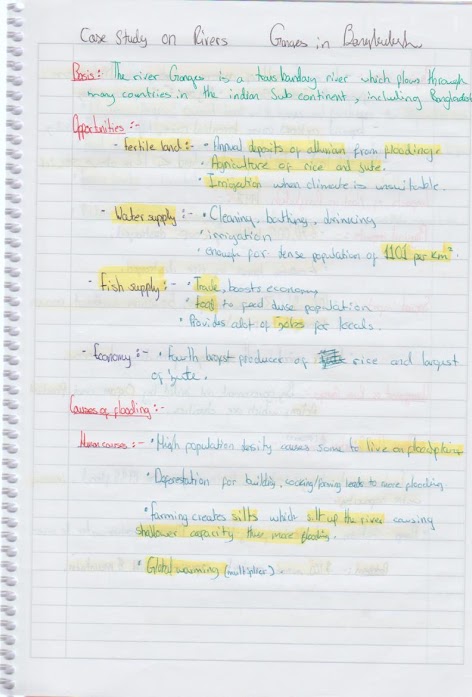 Case Study on Rivers Ganges in Bangladesh
Basis:- The river Ganges is a transboundary river which flows through
many countries in the indian Sub continent, including Bangladesh
Opportunities:-
- Fertile land:- • Annual deposits of alluvian from flooding.
• Agriculture of rice and jute.
• Irrigation when climate is unsuitable.
- Water supply:- • Cleaning, bathing, drinking
• irrigation
• enough for dense population of 1101 per km².
- Fish supply:- • Trade, boosts economy
• food to feed dense population
• Provides alot of jobs for locals.
- Economy:- • Fourth largest producer of rice and largest
of jute.
Causes of flooding:-
Human causes:- • High population density causes some to live on floodplains
• Deforestation for building, cooking/farming leads to more flooding.
• Farming creates silts which silt up the river causing
shallower capacity thus more flooding.
• Global warming (multiplier).